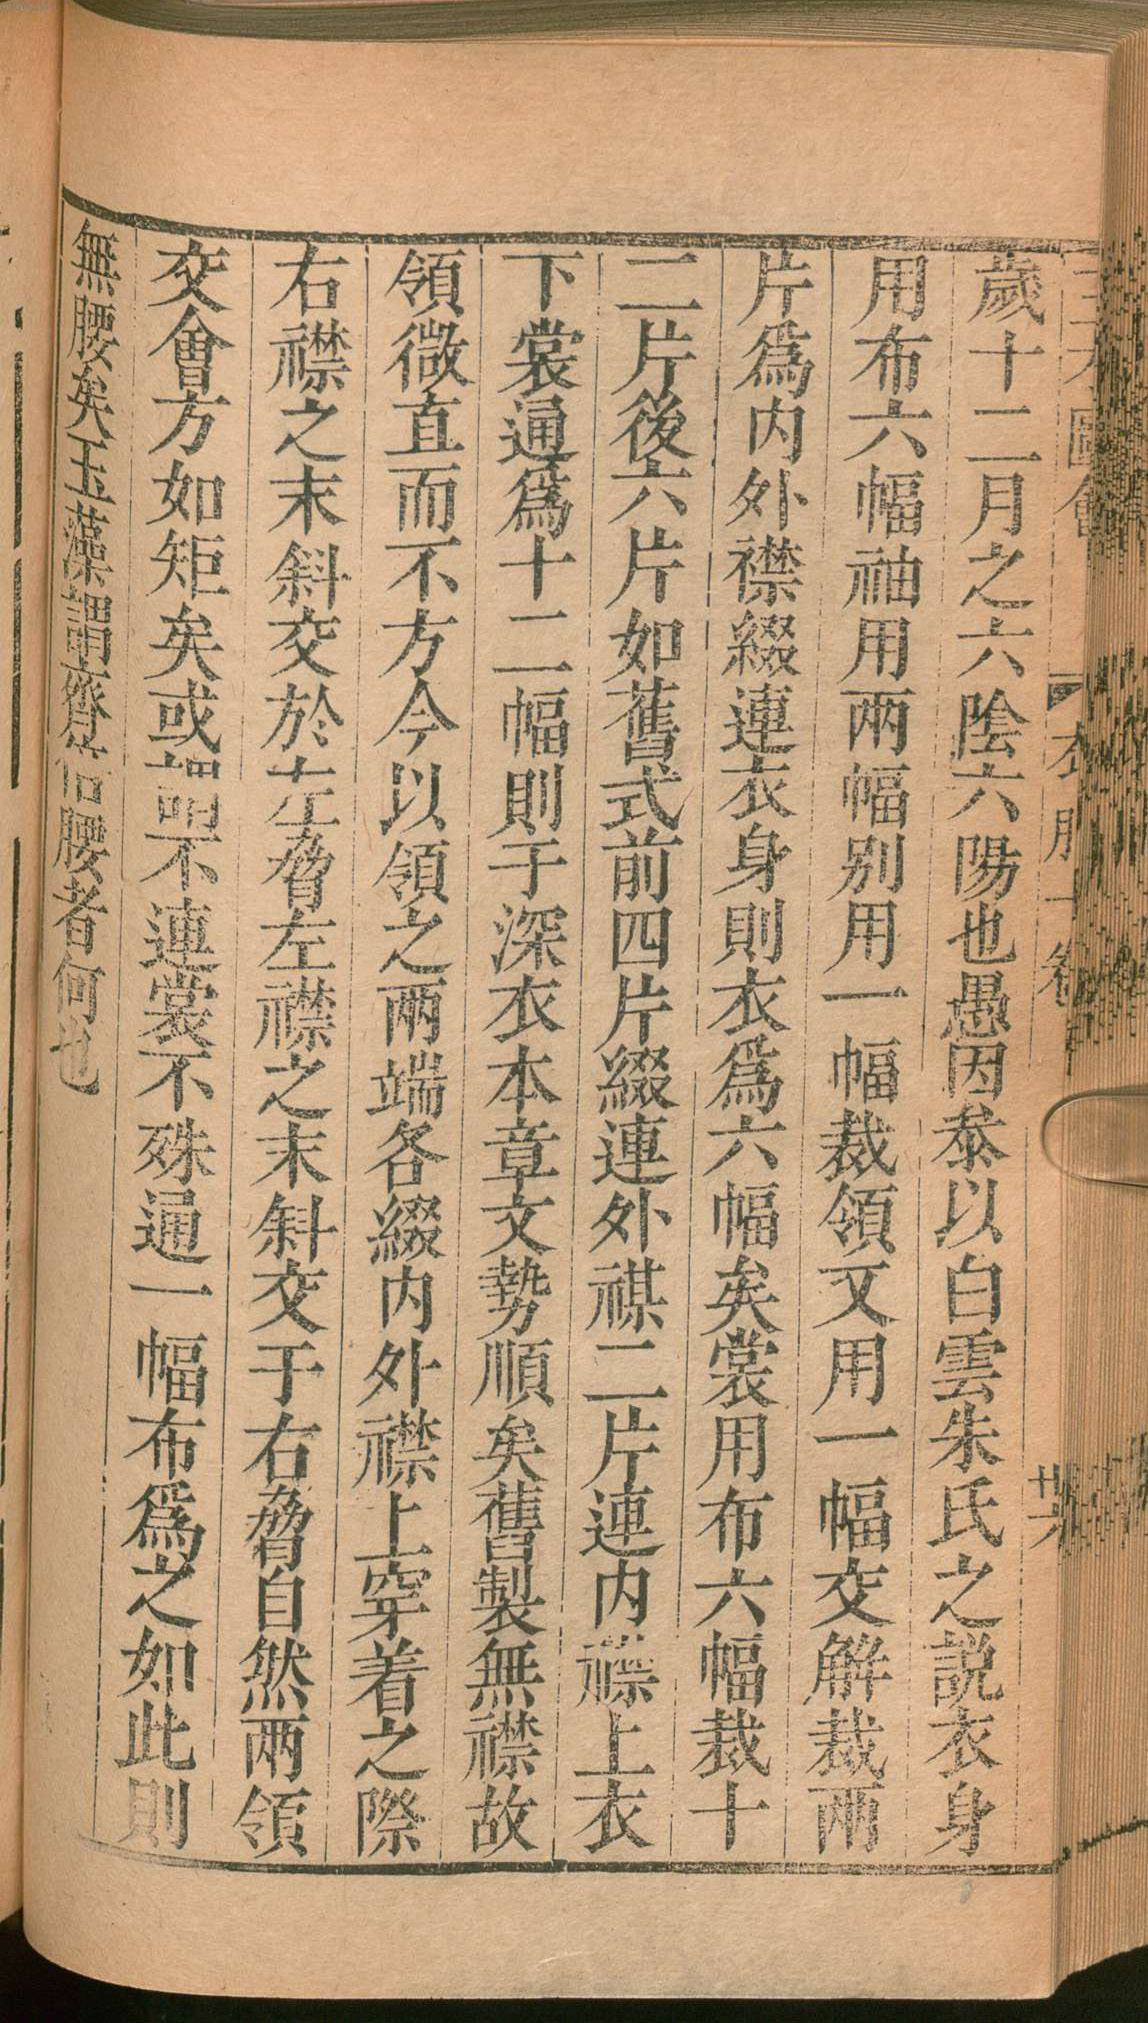 三才圖會 衣服一卷 廿六
歲十二月之六陰六陽也愚因叅以白雲朱氏之説衣身
用布六幅袖用兩幅别用一幅裁領又用一幅交解裁兩
片爲内外襟綴連衣身則衣爲六幅矣裳用布六幅裁十
二片後六片如舊式前四片綴連外襟二片連内襟上衣
下裳通爲十二幅則于深衣本章文勢順矣舊製無襟故
領微直而不方今以領之兩端各綴内外襟上穿着之際
右襟之末斜交於左脅左襟之末斜交于右脅自然兩領
交會方如矩矣或謂不連裳不殊通一幅布爲之如此則
無腰矣玉藻謂齊倍腰者何也